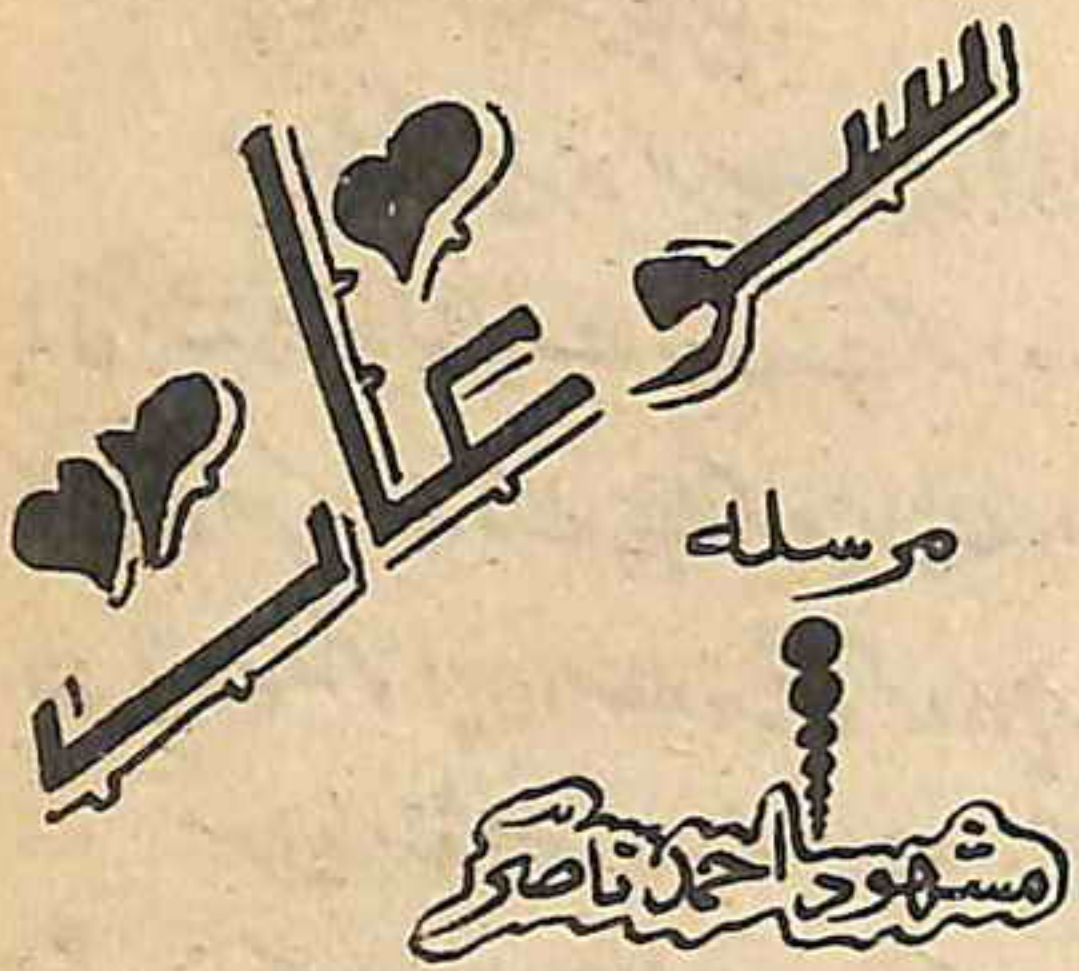 سوغات
مرسلہ
مشہود احمد ناصر